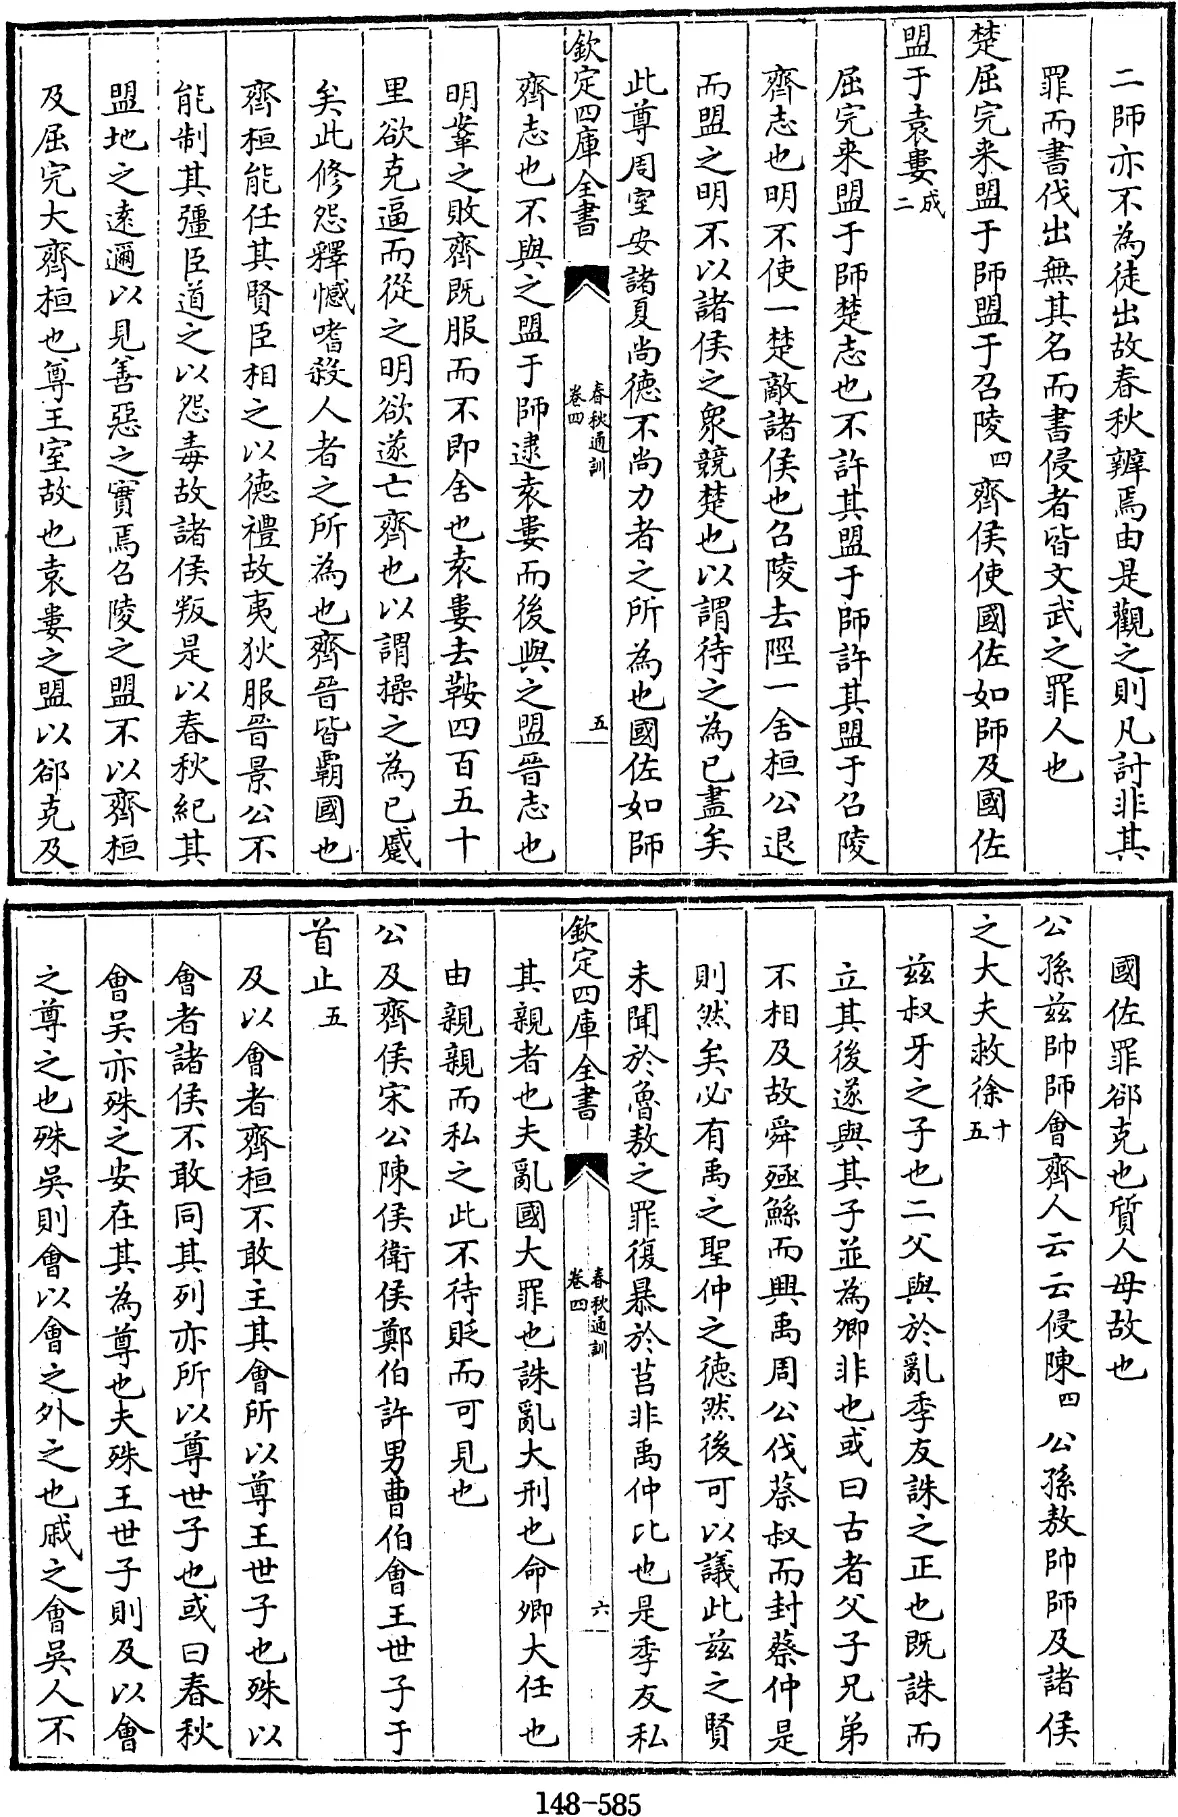 二師亦不為徒出故春秋辨焉由是觀之則凡討非其
罪而書伐出無其名而書侵者皆文武之罪人也
楚屈完来盟于師盟于召陵四 齊侯使國佐如師及國佐
盟于袁婁成二
屈完来盟于師楚志也不許其盟于師許其盟于召陵
齊志也明不使一楚敵諸侯也召陵去陘一舍桓公退
而盟之明不以諸侯之衆競楚也以謂待之為已盡矣
此尊周室安諸夏尚德不尚力者之所為也國佐如師
欽定四庫全書 春秋通訓卷四 五
齊志也不與之盟于師逮袁婁而後與之盟晉志也
明鞌之敗齊既服而不即舍也袁婁去鞍四百五十
里欲克逼而從之明欲遂亡齊也以謂操之為已蹙
矣此修怨釋憾嗜殺人者之所為也齊晉皆霸國也
齊桓能任其賢臣相之以德禮故夷狄服晉景公不
能制其彊臣道之以怨毒故諸侯叛是以春秋紀其
盟地之遠邇以見善惡之實焉召陵之盟不以齊桓
及屈完大齊桓也尊王室故也袁婁之盟以郤克及
國佐罪郤克也質人母故也
公孫兹帥師會齊人云云侵陳四 公孫敖帥師及諸侯
之大夫救徐十五
兹叔牙之子也二父與於亂季友誅之正也既誅而
立其後遂與其子並為卿非也或曰古者父子兄弟
不相及故舜殛鯀而興禹周公伐蔡叔而封蔡仲是
則然矣必有禹之聖仲之德然後可以議此兹之賢
未聞於魯敖之罪復暴於莒非禹仲比也是季友私
欽定四庫全書 春秋通訓卷四 六
其親者也夫亂國大罪也誅亂大刑也命卿大任也
由親親而私之此不待貶而可見也
公及齊侯宋公陳侯衛侯鄭伯許男曹伯會王世子于
首止五
及以會者齊桓不敢主其會所以尊王世子也殊以
會者諸侯不敢同其列亦所以尊世子也或曰春秋
會吳亦殊之安在其為尊也夫殊王世子則及以會
之尊之也殊吳則會以會之外之也戚之會吳人不
148-585